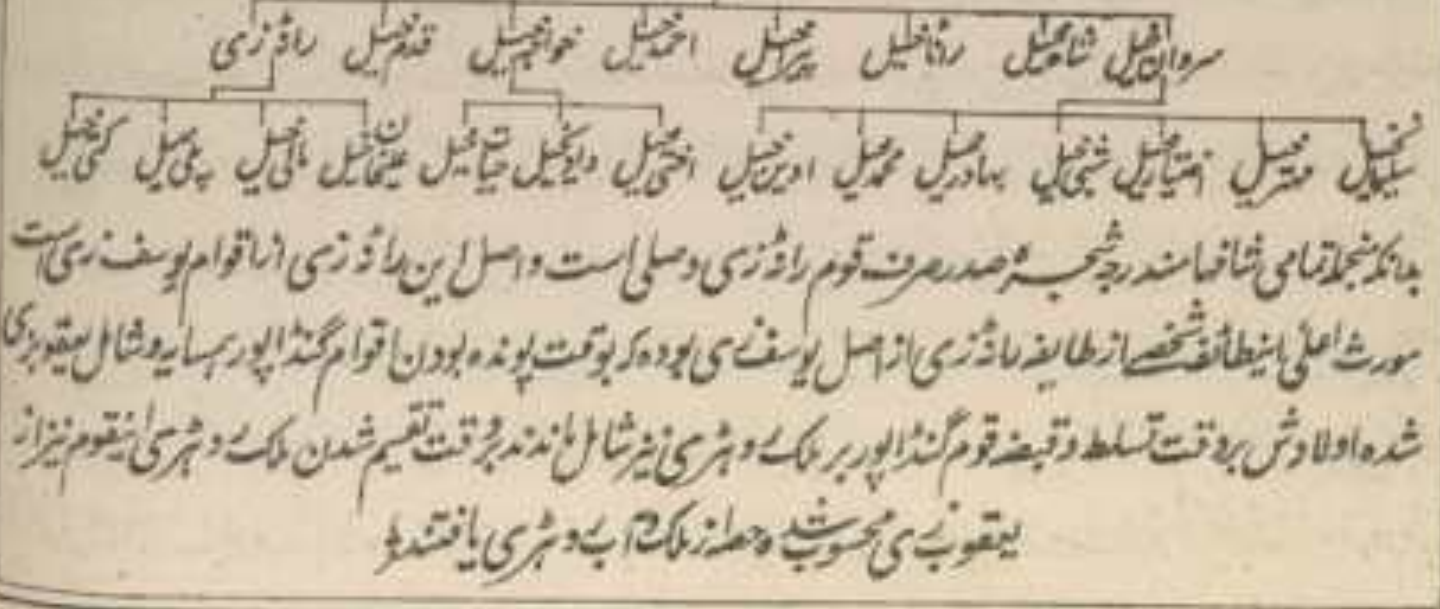 سروانخیل شاہخیل رڈناخیل پیراخیل احمدخیل خواجہخیل قدمخیل راڈزی
سلیمانخیل اختیارخیل شینخیل بہادرخیل محمدخیل ادینخیل داودخیل حیاتخیل علیخانخیل مانیخیل
بدانکہ منجملہ تمامی شاخہا مندرجہ شجرہ صدر صرف قوم راڈزی وصلی است و اصل این راڈزی از اقوام یوسف زی است
مورث اعلی اینطائفہ شخصے از طایفہ راڈزی از اصل یوسف زی بودہ کہ بوقت پوندہ بودن اقوام گنڈاپور ہمسایہ و شامل یعقوبزی
شدہ اولادش بروقت تسلط و قبضہ قوم گنڈاپور بر ملک دہشری نیز شامل ماندند بروقت تقسیم شدن ملک دہشری اینقوم نیز از
یعقوب زی محسوب شدہ حصہ از ملک و آب دہشری یافتند